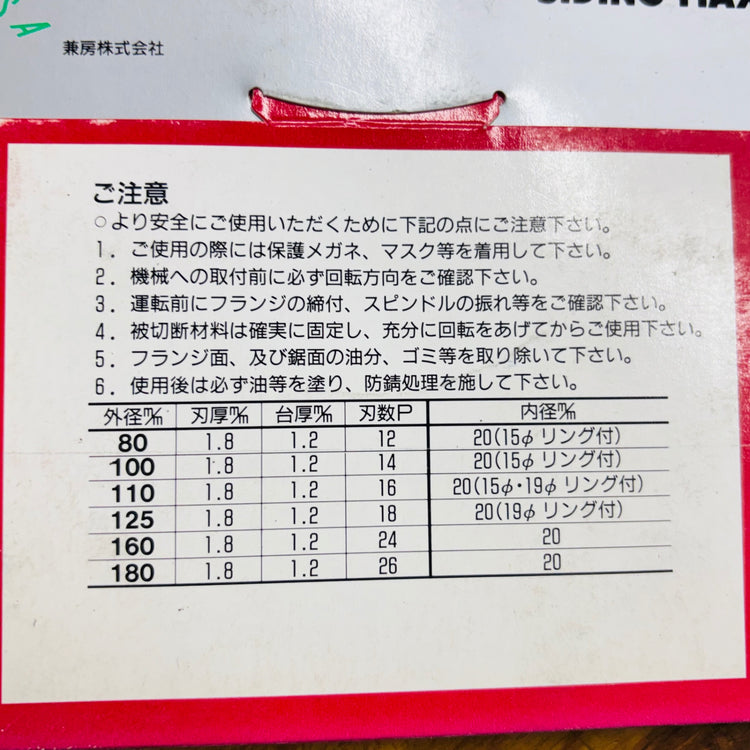 SA
兼房株式会社
ご注意
○より安全にご使用いただくために下記の点にご注意下さい。
1．ご使用の際には保護メガネ、マスク等を着用して下さい。
2．機械への取付前に必ず回転方向をご確認下さい。
3．運転前にフランジの締付、スピンドルの振れ等をご確認下さい。
4．被切断材料は確実に固定し、充分に回転をあげてからご使用下さい。
5．フランジ面、及び鋸面の油分、ゴミ等を取り除いて下さい。
6．使用後は必ず油等を塗り、防錆処理を施して下さい。
外径㎜ 刃厚㎜ 台厚㎜ 刃数P 内径㎜
80 1.8 1.2 12 20(15φリング付)
100 1.8 1.2 14 20(15φリング付)
110 1.8 1.2 16 20(15φ・19φリング付)
125 1.8 1.2 18 20(19φリング付)
160 1.8 1.2 24 20
180 1.8 1.2 26 20